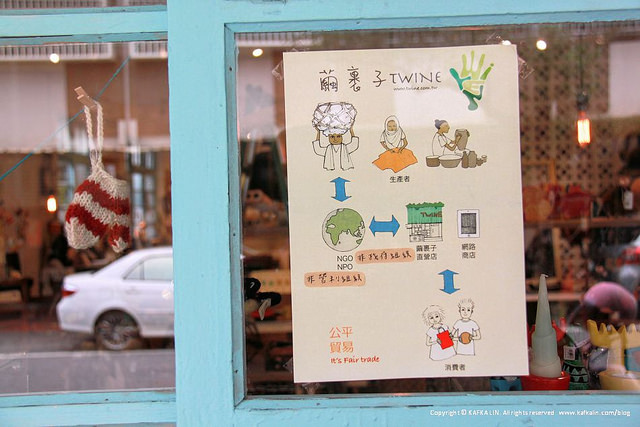 繭裹子TWINE
www.twine.com.tw
生產者
TWINE
NGO
NPO
非政府組織
非營利組織
繭裹子
直營店
網路
商店
公平
貿易
It's Fair trade
消費者
Copyright © KAFKALIN. All rights reserved. www.kafkalin.com/blog